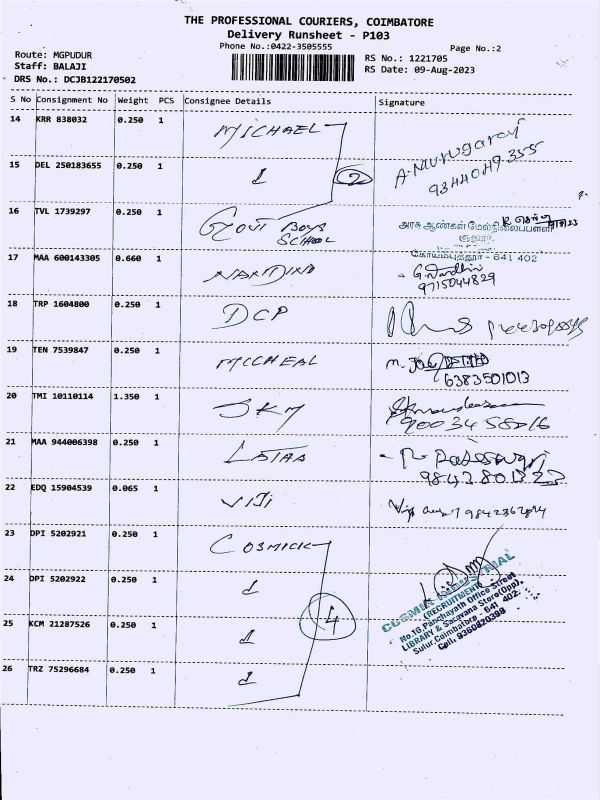 THE PROFESSIONAL COURIERS, COIMBATORE
Delivery Runsheet - P103
Phone No.:0422-3505555
Page No.:2
Route: MGPUDUR
Staff: BALAJI
DRS No.: DCJB122170502
RS No.: 1221705
RS Date: 09-Aug-2023
S No Consignment No Weight PCS Consignee Details Signature
14 KRR 838032 0.250 1 MICHAEL
15 DEL 250183655 0.250 1 1 2
16 TVL 1739297 0.250 1 Govt BOYS SCHOOL
அரசு ஆண்கள் மேல்நிலைப்பள்ளி
கோயம்புத்தூர் - 641 402
17 MAA 600143305 0.660 1
9715044829
18 TRP 1604800 0.250 1 DCP
19 TEN 7539847 0.250 1 MICCHEAL
6383501013
20 TMI 10110114 1.350 1 SKM
21 MAA 944006398 0.250 1
22 EDQ 15904539 0.065 1 VIJI
23 DPI 5202921 0.250 1 COSMICK
24 DPI 5202922 0.250 1 1
25 KCM 21287526 0.250 1 1 4
26 TRZ 75296684 0.250 1 1
COSMIC INDUSTRIAL
(RECRUITMENT)
No.18, Panchayath Office Street
LIBRARY & Saravana Store(Opp),
Sulur, Coimbatore - 641 402.
Cell: 9360820398